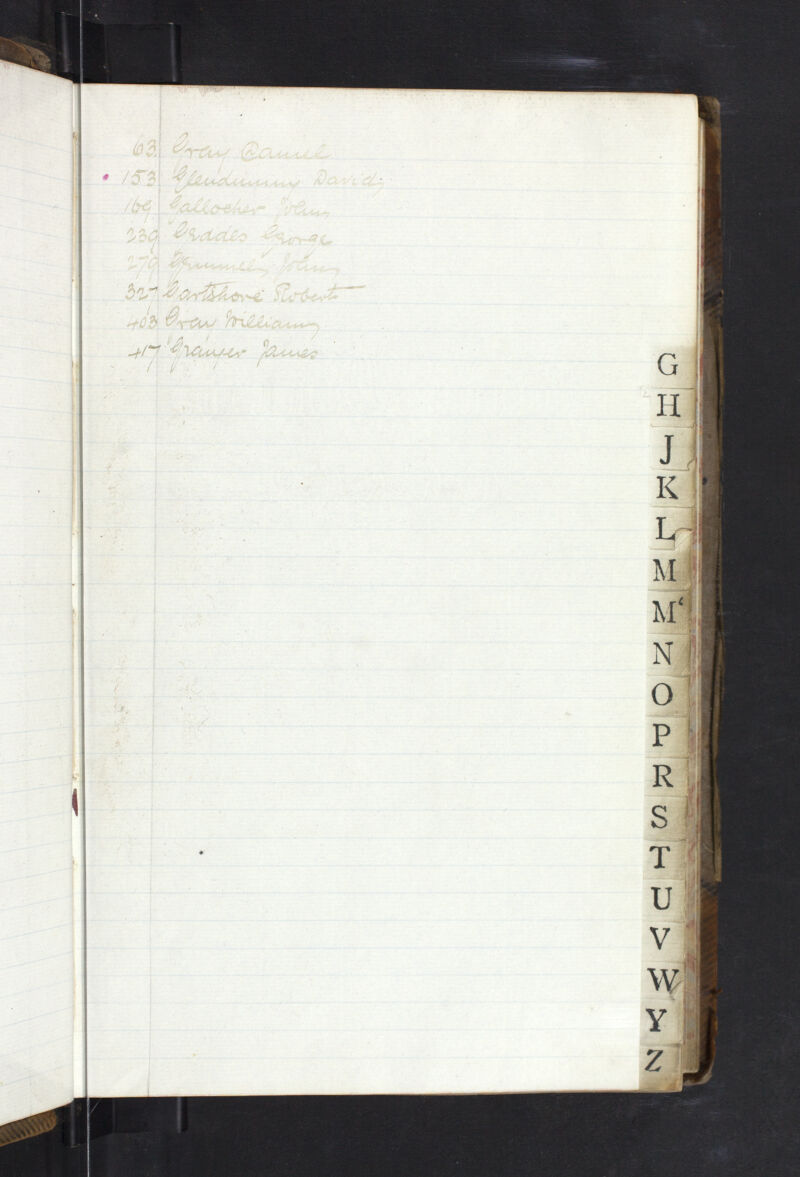 63 Gray Daniel
153 Glendinning David
169 Gallocher John
239 Geddes George
279 Gemmell John
327 Gartshore Robert
403 Gray William
417 Granger James
G
H
J
K
L
M
M'
N
O
P
R
S
T
U
V
W
Y
Z